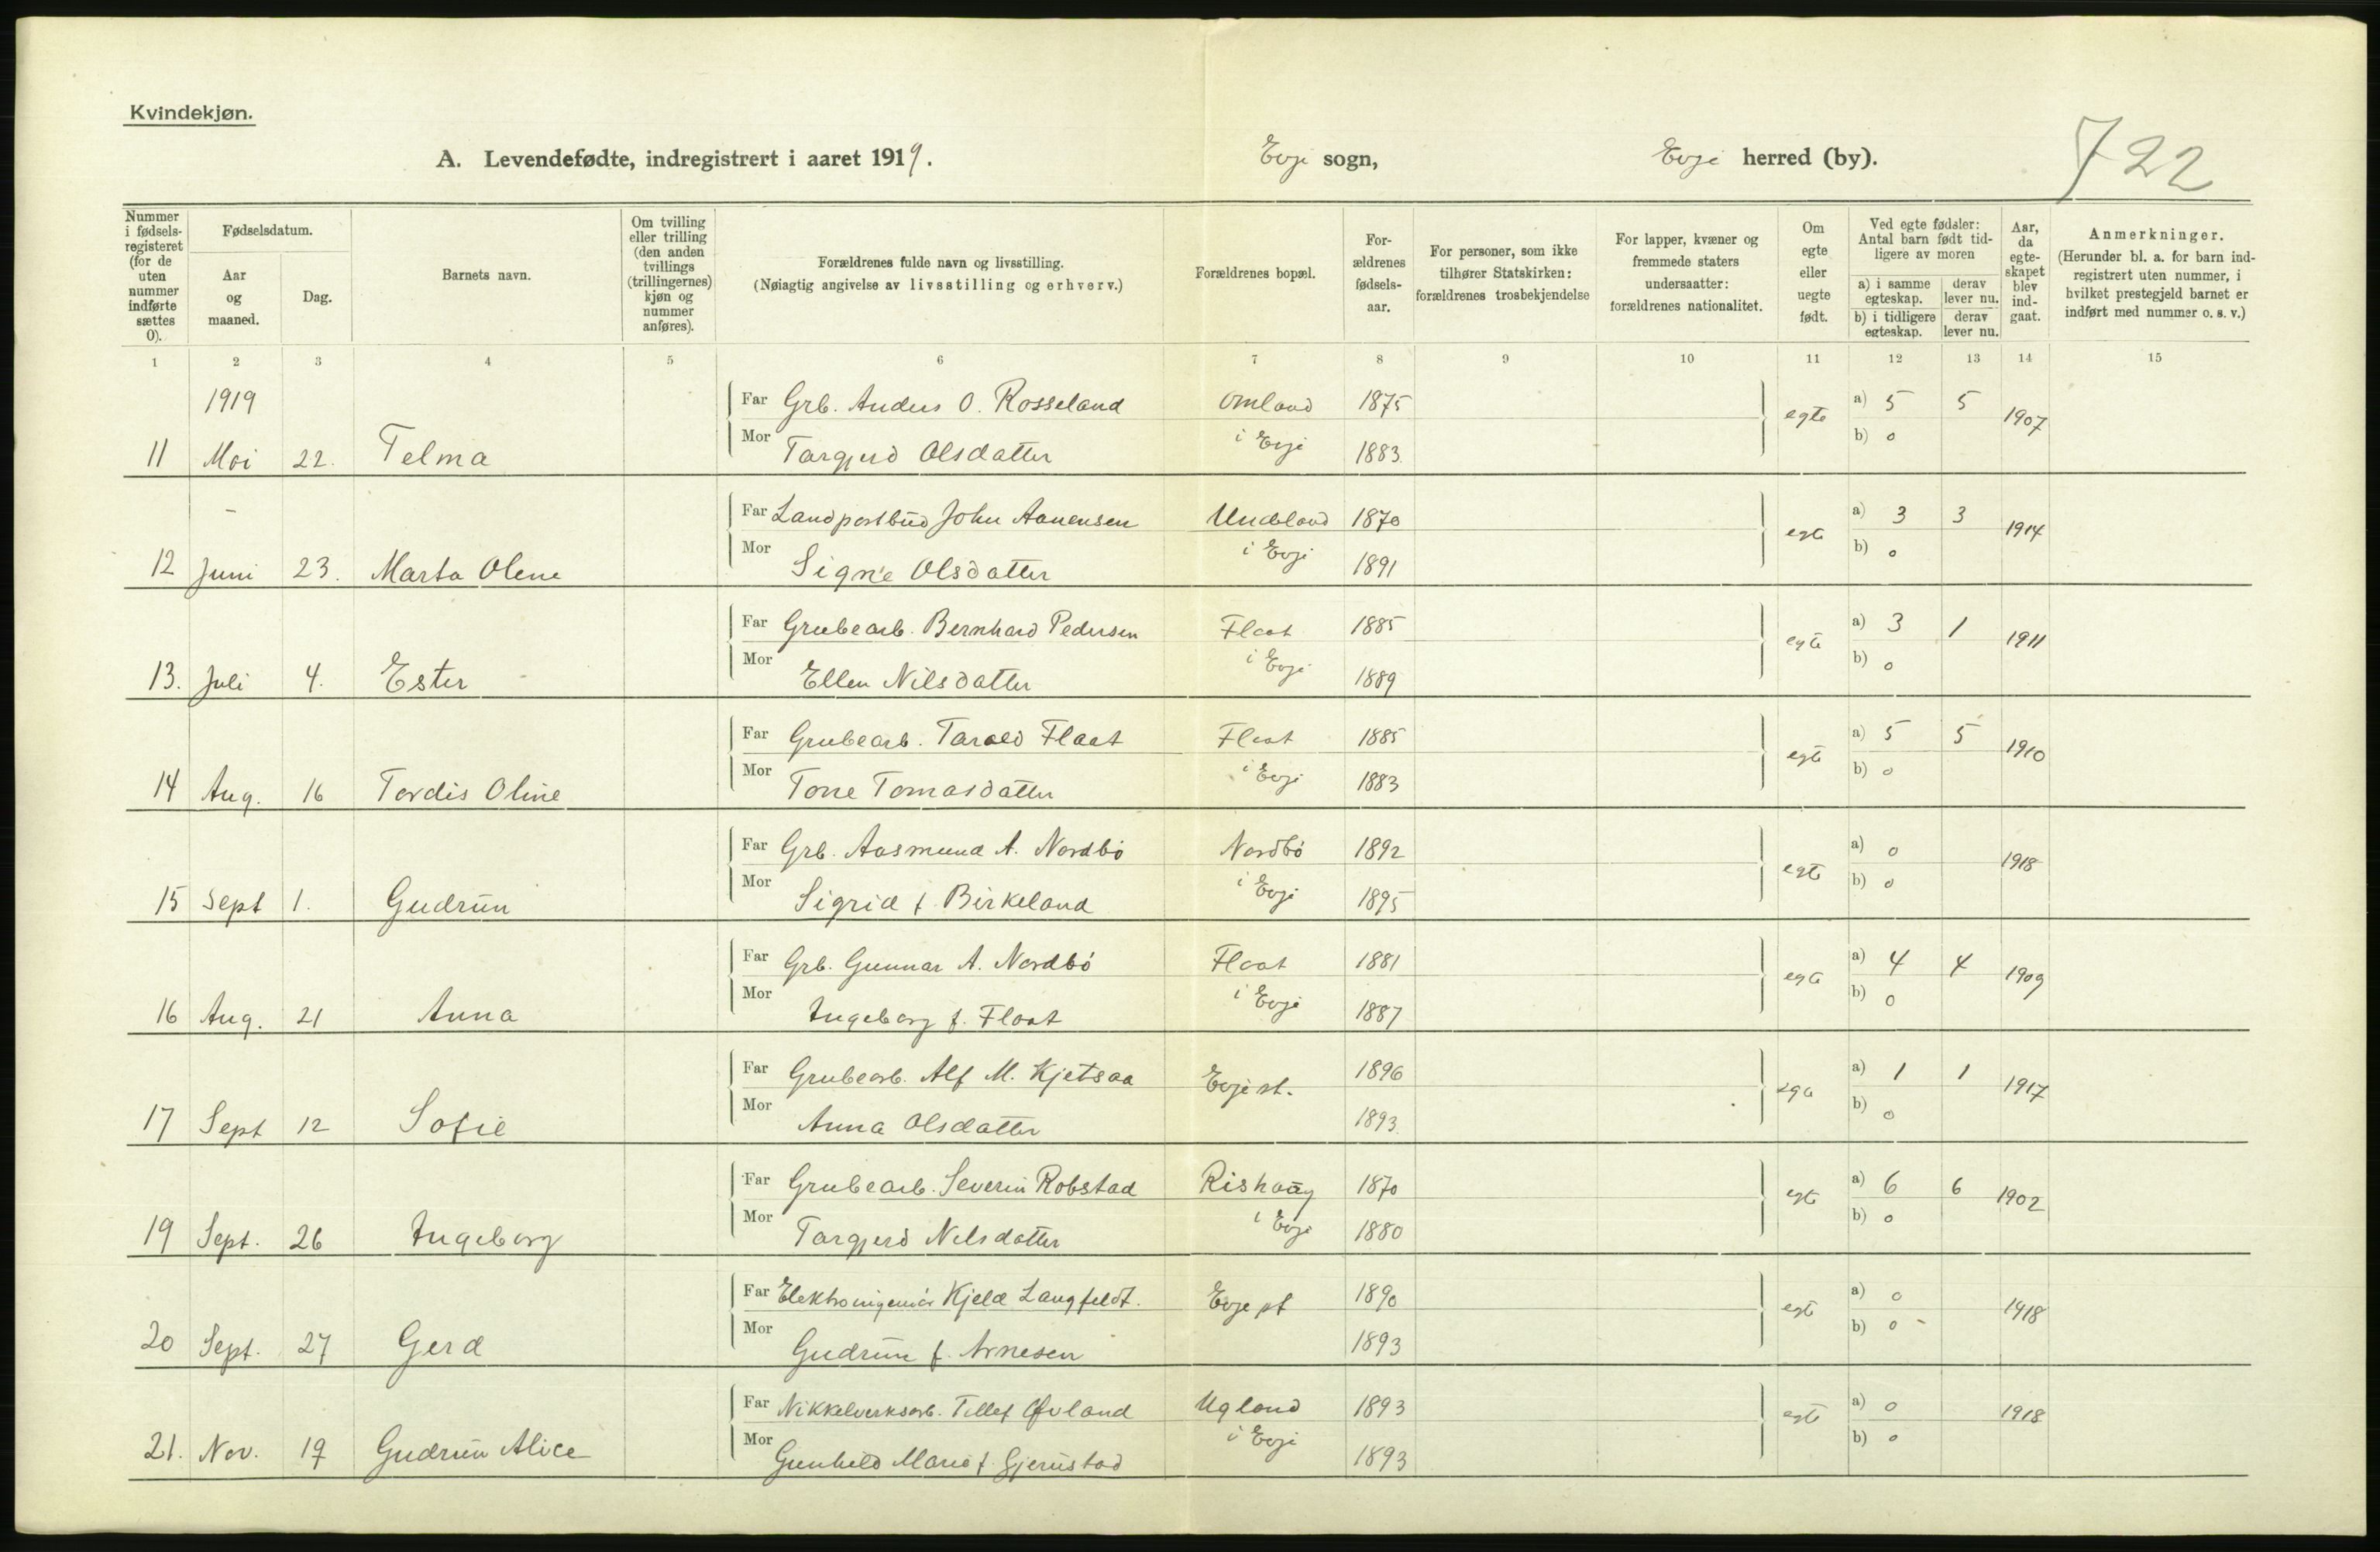 Kvindekjøn.
A. Levendefødte, indregistrert i aaret 1919. Evje sogn, Evje herred (by). 722
Nummer i fødsels-registeret (for de uten nummer indførte sættes 0).
Fødselsdatum.
Aar og maaned.
Dag.
Barnets navn.
Om tvilling eller trilling (den anden tvillings (trillingernes) kjøn og nummer anføres).
Forældrenes fulde navn og livsstilling.
(Nøiagtig angivelse av livsstilling og erhverv.)
Forældrenes bopæl.
For-ældrenes fødsels-aar.
For personer, som ikke tilhører Statskirken: forældrenes trosbekjendelse
For lapper, kvæner og fremmede staters undersaatter: forældrenes nationalitet.
Om egte eller uegte født.
Ved egte fødsler: Antal barn født tid-ligere av moren
a) i samme egteskap. derav lever nu.
b) i tidligere egteskap. derav lever nu.
Aar, da egte-skapet blev ind-gaat.
Anmerkninger.
(Herunder bl. a. for barn ind-registrert uten nummer, i hvilket prestegjeld barnet er indført med nummer o. s. v.)
1 2 3 4 5 6 7 8 9 10 11 12 13 14 15
1919 Far Grb. Anders O. Rosseland Omland 1875 egte a) 5 5 1907
11 Mai 22. Telma Mor Targjerd Olsdatter i Evje 1883 b) 0
- Far Landpostbud John Aanensen Uneland 1870 egte a) 3 3 1914
12 Juni 23. Marta Olene Mor Signe Olsdatter i Evje 1891 b) 0
Far Grubearb. Bernhard Pedersen Flaat 1885 egte a) 3 1 1911
13. Juli 4. Ester Mor Ellen Nilsdatter i Evje 1889 b) 0
Far Grubearb. Tarald Flaat Flaat 1885 egte a) 5 5 1910
14 Aug. 16 Tordis Oline Mor Tone Tomasdatter i Evje 1883 b) 0
Far Grb. Aasmund A. Nordbø Nordbø 1892 egte a) 0 1918
15 Sept 1. Gudrun Mor Sigrid f. Birkeland i Evje 1895 b) 0
Far Grb. Gunnar A. Nordbø Flaat 1881 egte a) 4 4 1909
16 Aug. 21 Anna Mor Ingeborg f. Flaat i Evje 1887 b) 0
Far Grubearb. Alf M. Kjetsaa Evje st. 1896 egte a) 1 1 1917
17 Sept 12 Sofie Mor Anna Olsdatter 1893 b) 0
Far Grubearb. Severin Robstad Rishaug 1870 egte a) 6 6 1902
19 Sept. 26 Ingeborg Mor Targjerd Nilsdatter i Evje 1880 b) 0
Far Elektroingeniør Kjeld Langfeldt. Evje st 1890 egte a) 0 1918
20 Sept. 27 Gerd Mor Gudrun f. Arnesen 1893 b) 0 -
Far Nikkelverksarb. Tellef Øvland Ugland 1893 egte a) 0 1918
21. Nov. 19 Gudrun Alice Mor Gunhild Marie f. Gjerustad i Evje 1893 b) 0